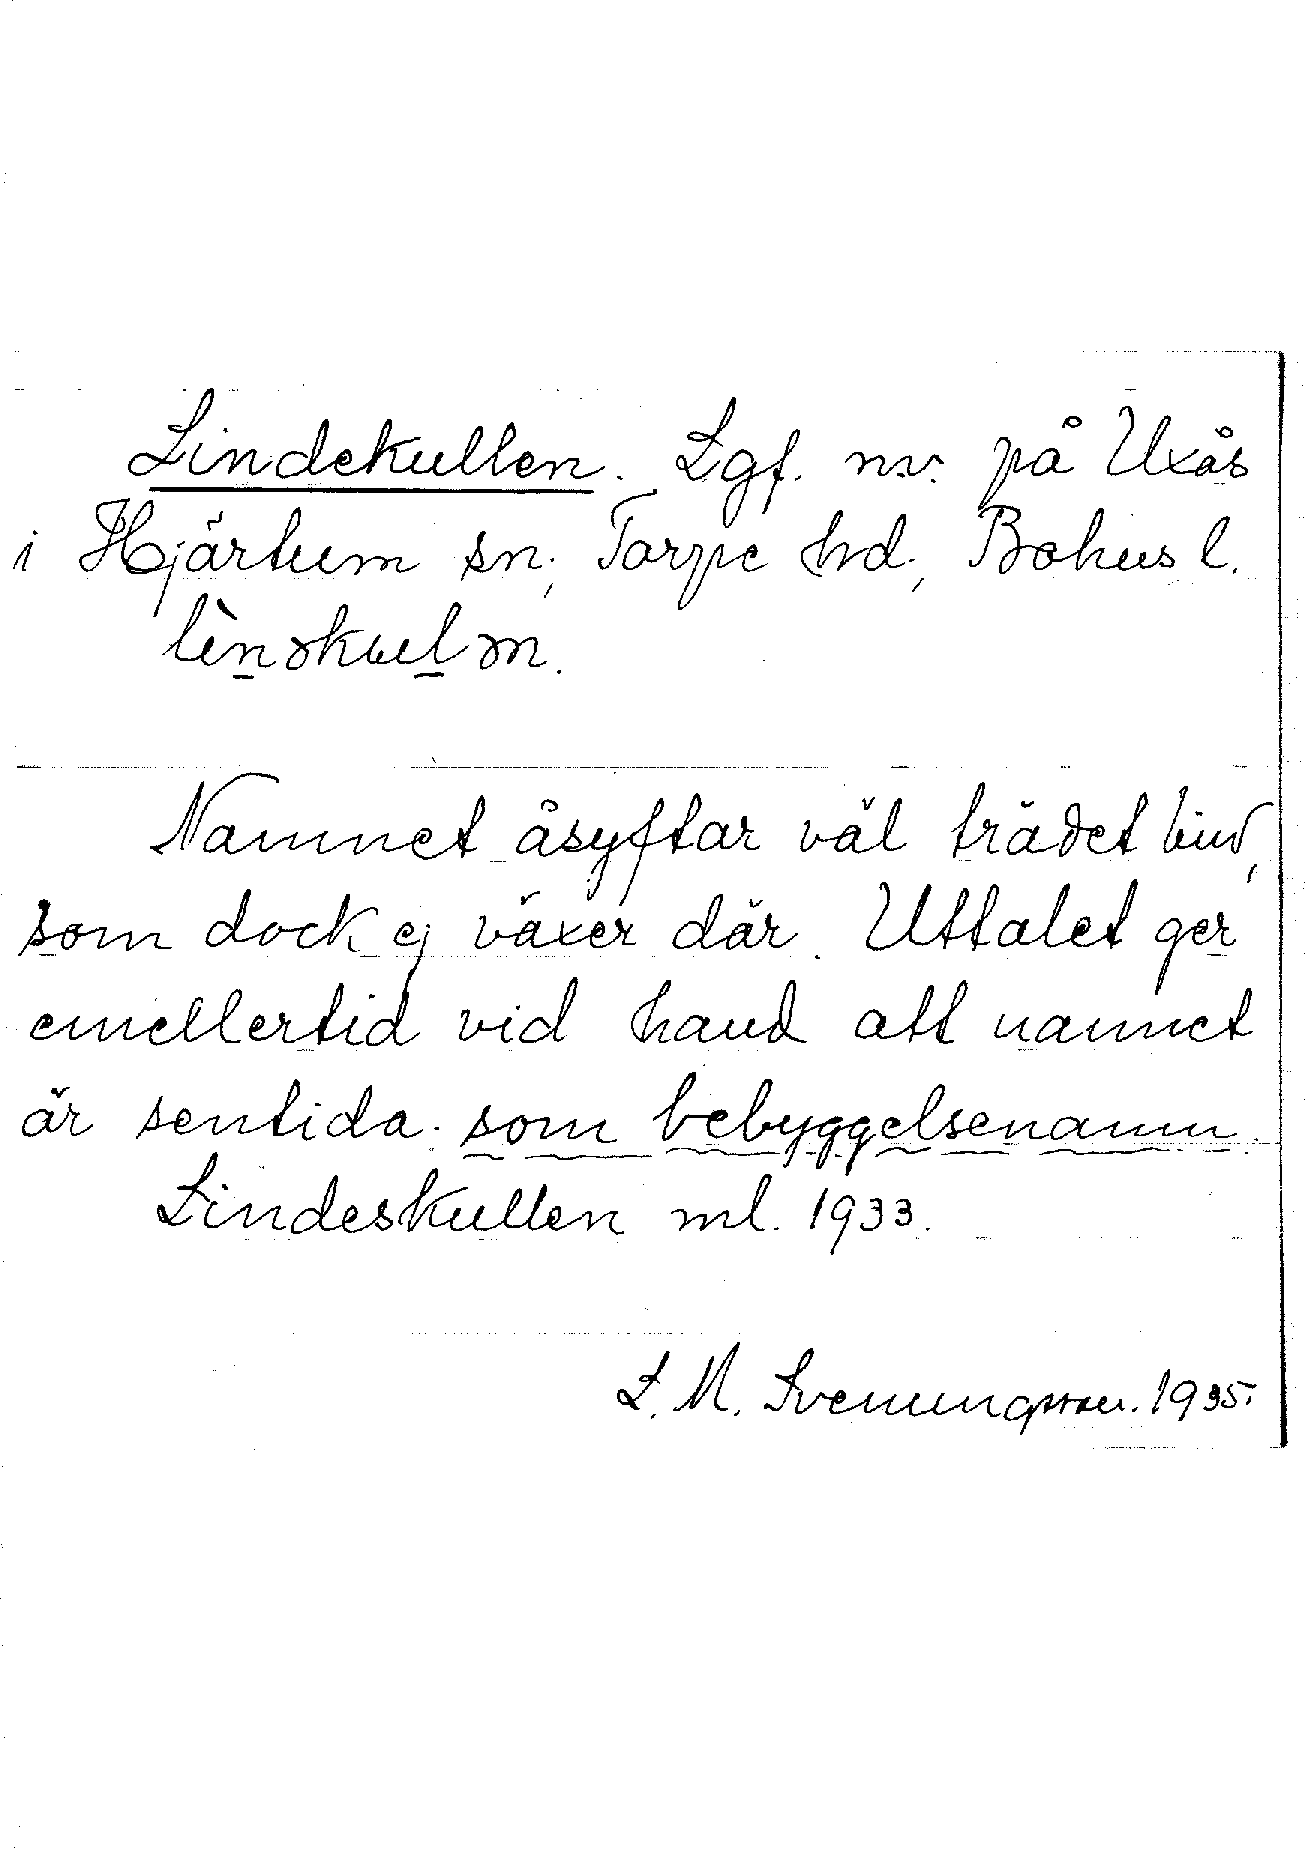 Lindekullen. Lgf. nv. på Uxås
i Hjärtum sn, Torpe hd, Bohus l.
lìnəkuləm.
Namnet åsyftar väl trädet lind,
som dock ej växer där. Uttalet ger
emellertid vid hand att namnet
är sentida som bebyggelsenamn.
Lindeskullen ml. 1933.
L. M. Svenungsson. 1935.